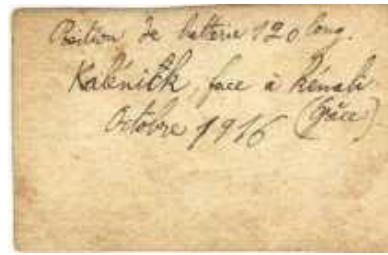 Position de batterie 120 long.
Kalénitk, face à Kénali
Octobre 1916 (Grèce)